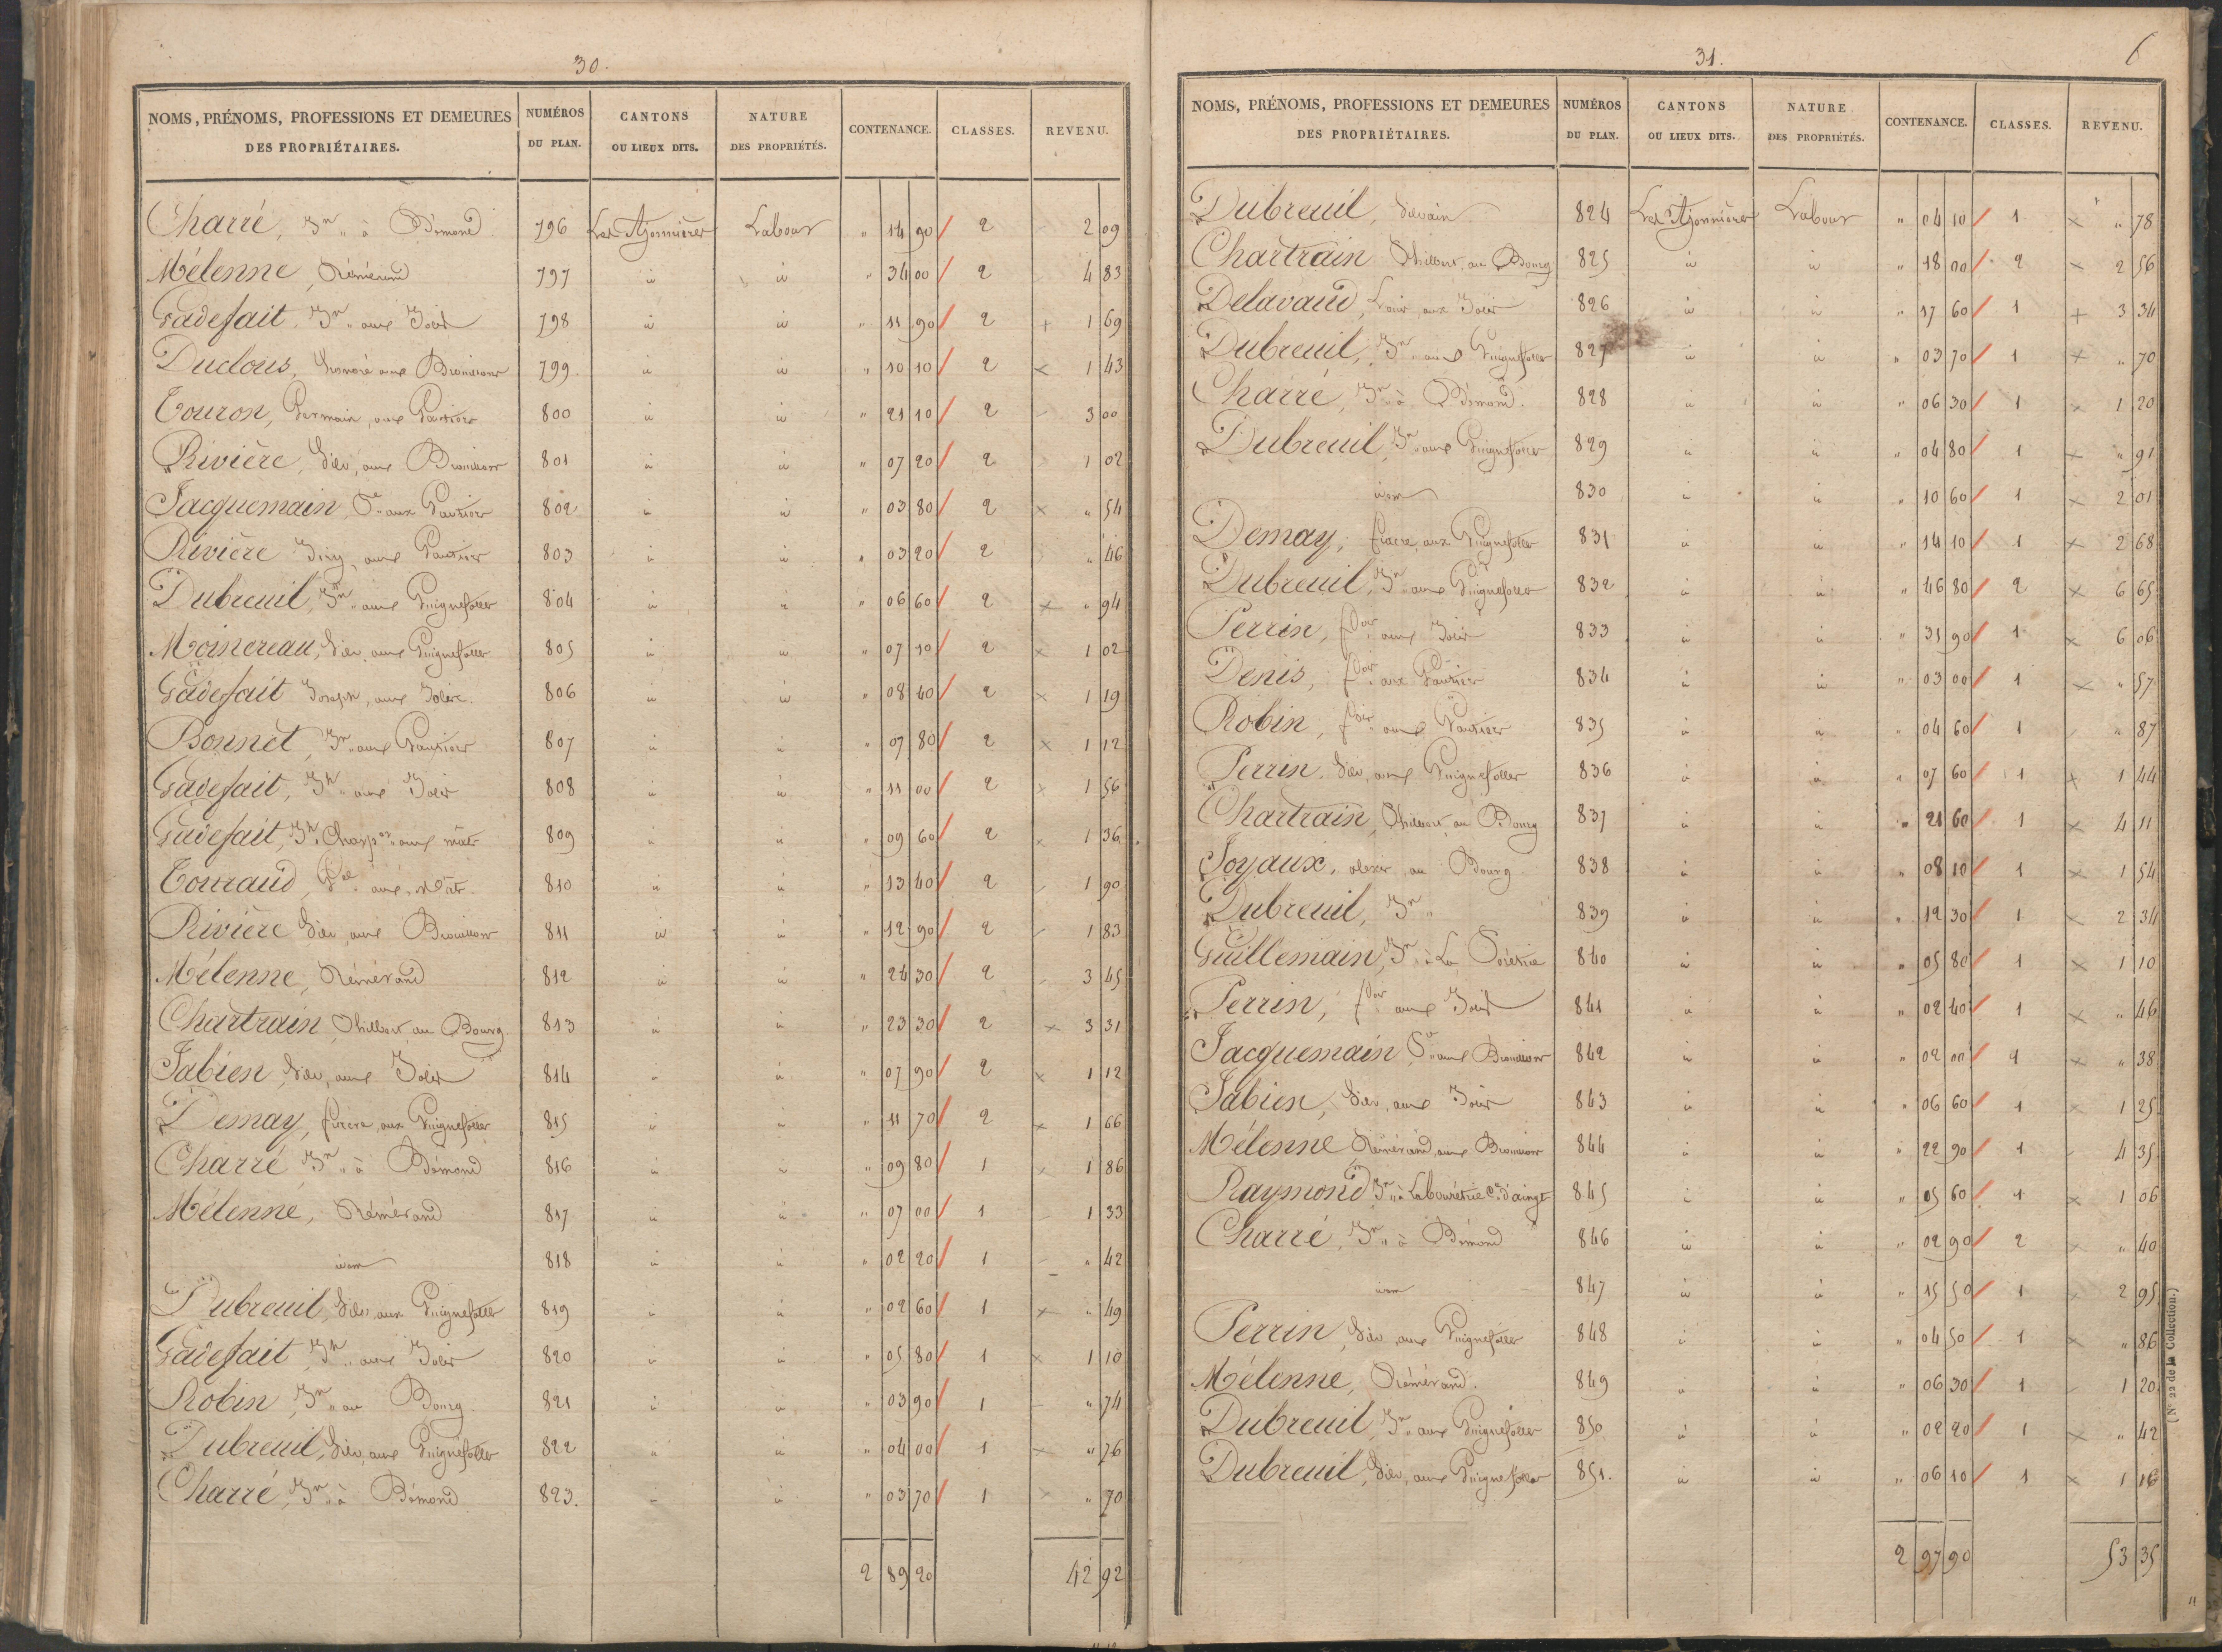 30.
NOMS, PRÉNOMS, PROFESSIONS ET DEMEURES DES PROPRIÉTAIRES. NUMÉROS DU PLAN. CANTONS OU LIEUX DITS. NATURE DES PROPRIÉTÉS. CONTENANCE. CLASSES. REVENU.
Charré, Jn à Bémond 796 Les Ajonnières Labour " 14 90 2 2 09
Mélenne, Rémérand 797 id id " 34 00 2 4 83
Gadefait, Jn aux 798 id id " 11 90 2 + 1 69
Duclous, honoré aux 799 id id " 10 10 2 x 1 43
Touron, Germain, aux Gautiers 800 id id " 21 10 2 3 00
Rivière, Silv, aux 801 id id " 07 20 2 1 02
Jacquemain, aux Gautiers 802 id id " 03 80 2 x " 54
Rivière aux Gautiers 803 id id " 03 20 2 " 46
Dubreuil, Jn aux Puignefolles 804 id id " 06 60 2 x " 94
Moinereau, Silv, aux Puignefolles 805 id id " 07 10 2 x 1 02
Gadefait Joseph, aux 806 id id " 08 40 2 x 1 19
Bonnet, Jn aux Gautiers 807 id id " 07 80 2 x 1 12
Gadefait, Jh aux 808 id id " 11 00 2 x 1 56
Gadefait, Jh aux 809 id id " 09 60 2 x 1 36
Touraud, aux 810 id id " 13 40 2 1 90
Rivière Silv, aux 811 id id " 12 90 2 1 83
Mélenne, Rémérand 812 id id " 24 30 2 3 45
Chartrain, Philbert, au Bourg 813 id id " 23 30 2 x 3 31
Fabien Silv, aux 814 id id " 07 90 2 x 1 12
Demay, fiacre, aux Puignefolles 815 id id " 11 70 2 x 1 66
Charré Jn à Bémond 816 id id " 09 80 1 x 1 86
Mélenne, Rémérand 817 id id " 07 00 1 1 33
idem 818 id id " 02 20 1 " 42
Dubreuil, Silv, aux Puignefolles 819 id id " 02 60 1 x " 49
Gadefait Jh aux 820 id id " 05 80 1 x 1 10
Robin, Jn au Bourg 821 id id " 03 90 1 " 74
Dubreuil, Silv, aux Puignefolles 822 id id " 04 00 1 x " 76
Charré, Jn à Bémond 823. id id " 03 70 1 x " 70
2 89 20 42 92
31.
6
NOMS, PRÉNOMS, PROFESSIONS ET DEMEURES DES PROPRIÉTAIRES. NUMÉROS DU PLAN. CANTONS OU LIEUX DITS. NATURE DES PROPRIÉTÉS. CONTENANCE. CLASSES. REVENU.
Dubreuil, Silvain 824 Les Ajonnières Labour " 04 10 1 x " 78
Chartrain Philbert, au Bourg 825 id id " 18 00 2 x 2 56
Delavaud, Louis, aux 826 id id " 17 60 1 + 3 34
Dubreuil, Jn aux Puignefolles 827 id id " 03 70 1 x " 70
Charré, Jn à Bémond. 828 id id " 06 30 1 x 1 20
Dubreuil, Jn aux Puignefolles 829 id id " 04 80 1 x " 91
idem 830 id id " 10 60 1 x 2 01
Demay, fiacre, aux Puignefolles 831 id id " 14 10 1 x 2 68
Dubreuil, Jn aux Puignefolles 832 id id " 46 80 2 x 6 65
Perrin, aux 833 id id " 31 90 1 x 6 06
Denis, aux Gautiers 834 id id " 03 00 1 x " 57
Robin, aux Gautiers 835 id id " 04 60 1 " 87
Perrin, Silv, aux Puignefolles 836 id id " 07 60 1 x 1 44
Chartrain, Philbert, au Bourg 837 id id " 21 60 1 x 4 11
Joyaux, au Bourg 838 id id " 08 10 1 x 1 54
Dubreuil, Jn 839 id id " 12 30 1 x 2 34
Guillemain, Jn à La 840 id id " 05 80 1 x 1 10
Perrin, aux 841 id id " 02 40 1 x " 46
Jacquemain, aux 842 id id " 02 00 1 x " 38
Fabien, Silv, aux 843 id id " 06 60 1 x 1 25
Mélenne Rémérand, aux 844 id id " 22 90 1 4 35
Raymond Jn à 845 id id " 05 60 1 x 1 06
Charré, Jn à Bémond 846 id id " 02 90 2 x " 40
idem 847 id id " 15 50 1 2 95
Perrin, Silv, aux Puignefolles 848 id id " 04 50 1 x " 86
Mélenne, Rémérand. 849 id id " 06 30 1 1 20
Dubreuil, Jn aux Puignefolles 850 id id " 02 20 1 x " 42
Dubreuil, Silv, aux Puignefolles 851. id id " 06 10 1 x 1 16
2 97 90 53 35
(N° 22 de la Collection.)